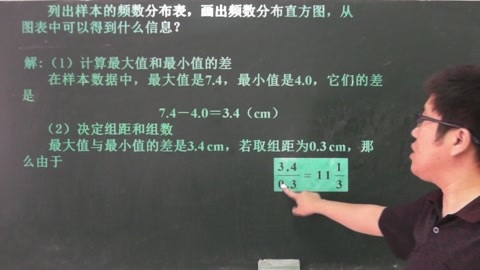 列出样本的频数分布表，画出频数分布直方图，从
图表中可以得到什么信息？
解：（1）计算最大值和最小值的差
在样本数据中，最大值是7.4，最小值是4.0，它们的差
是
7.4－4.0＝3.4（cm）
（2）决定组距和组数
最大值与最小值的差是3.4 cm，若取组距为0.3 cm，那
么由于
3.4/0.3 = 11 1/3